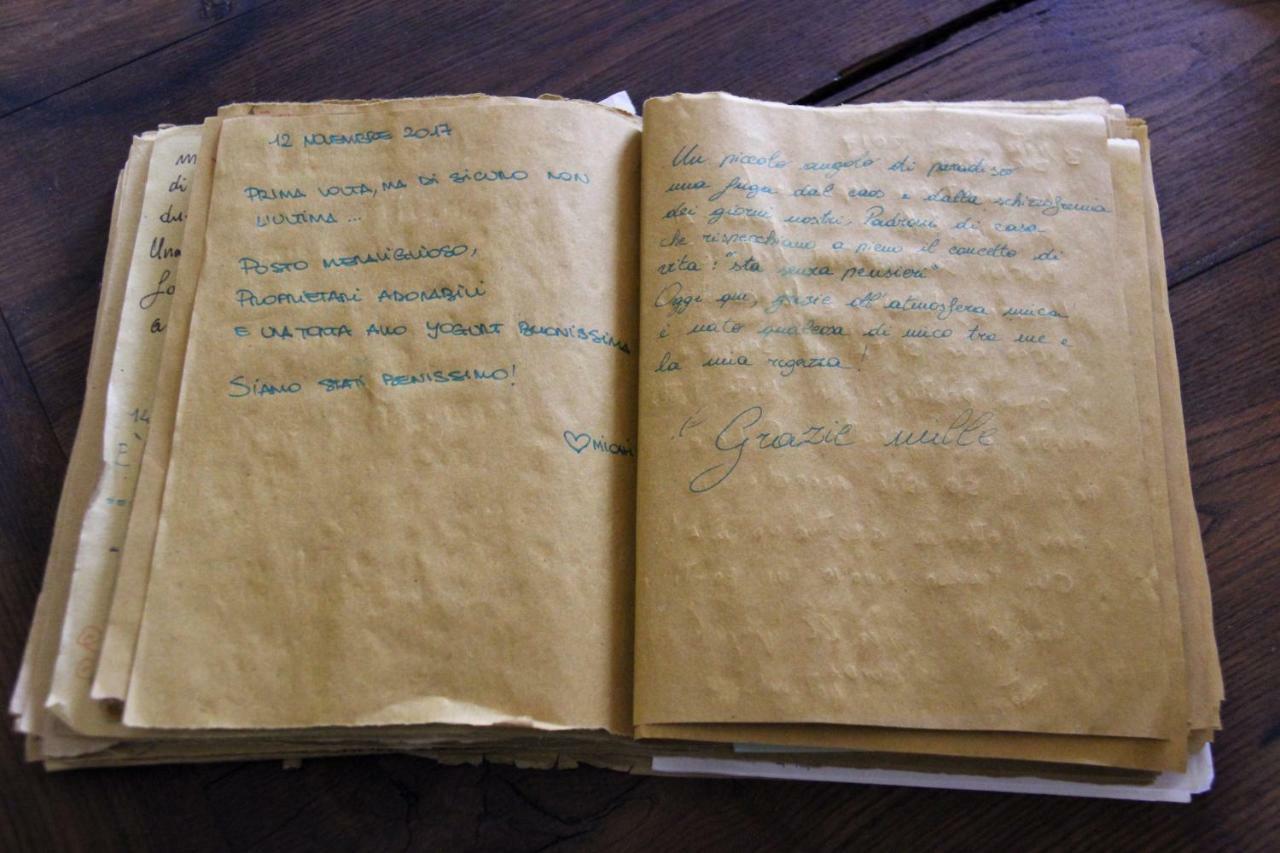 12 NOVEMBRE 2017
PRIMA VOLTA, MA DI SICURO NON
L'ULTIMA ...
POSTO MERAVIGLIOSO,
PROPRIETARI ADORABILI
E UNA TORTA ALLO YOGURT BUONISSIMA
SIAMO STATI BENISSIMO!
m
di
du
Una
fo
a
14
E'
Un piccolo angolo di paradiso
una fuga dal caos e dalla schizofrenia
dei giorni nostri. Padroni di casa
che rispecchiano a pieno il concetto di
vita: "sta senza pensieri"
Oggi qui, grazie all'atmosfera unica
è nato qualcosa di unico tra me e
la mia ragazza!
Grazie mille